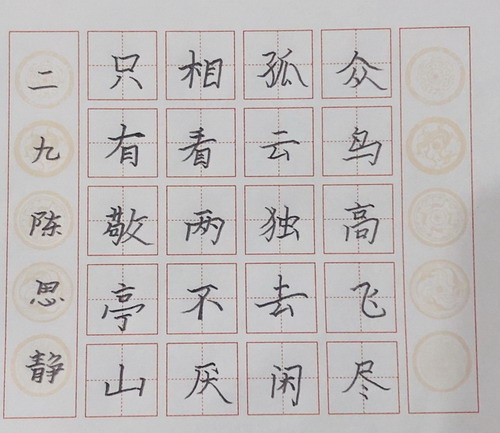 众鸟高飞尽
孤云独去闲
相看两不厌
只有敬亭山
二九陈思静